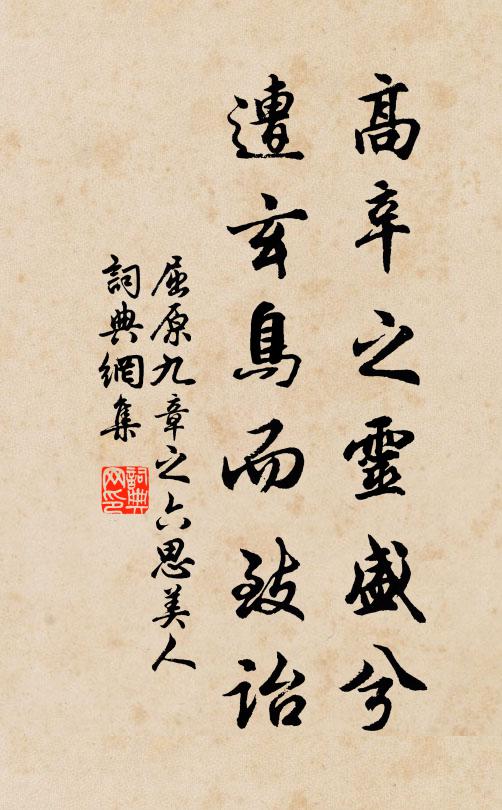 高辛之靈盛兮
遭玄鳥而致詒
屈原九章之六思美人
詞典網集
詞典網印